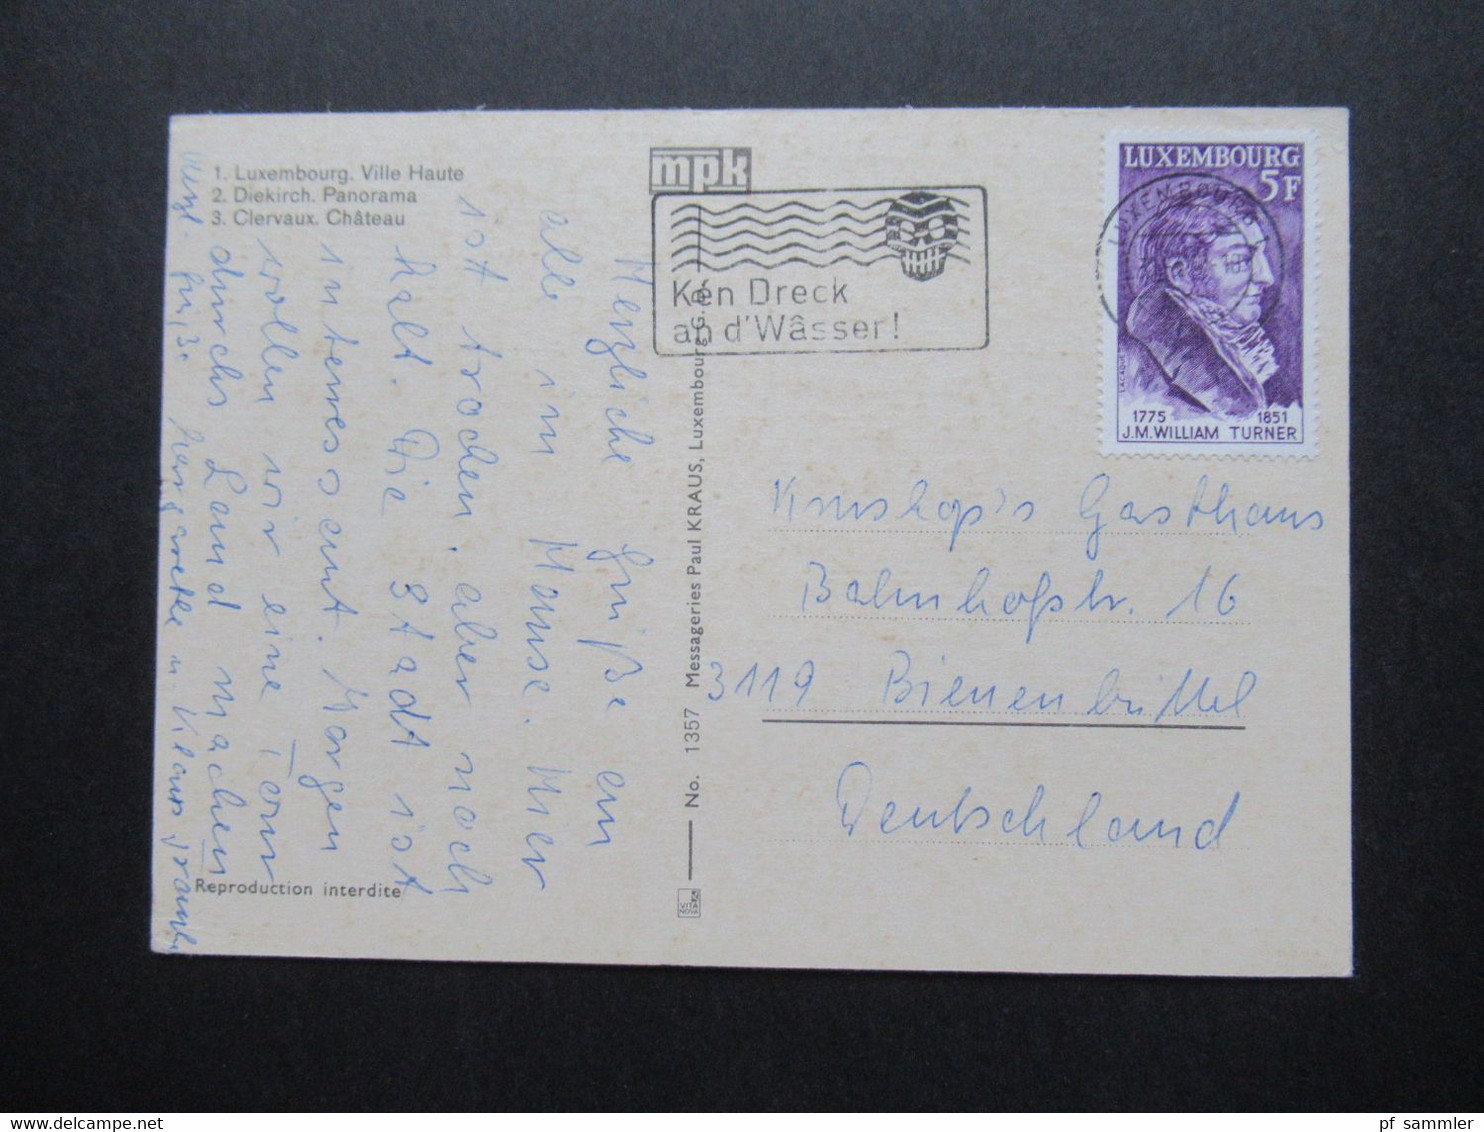 1. Luxembourg. Ville Haute
2. Diekirch. Panorama
3. Clervaux. Château
mpk
Ken Dreck
an d'Wâsser!
LUXEMBOURG
LUXEMBOURG
5F
LACAQUE
1775 1851
J.M.WILLIAM TURNER
Herzliche Grüße an
alle im Hause. Hier
ist trocken, aber noch
kalt. Die Stadt ist
interessant. Morgen
wollen wir eine Tour
durchs Land machen
Grüße Margarethe u. Klaus
No. 1357 Messageries Paul KRAUS, Luxembourg G.D.
VITA
NOVA
Gasthaus
Bahnhofstr. 16
3119 Bienenbüttel
Deutschland
Reproduction interdite
pf_sammler